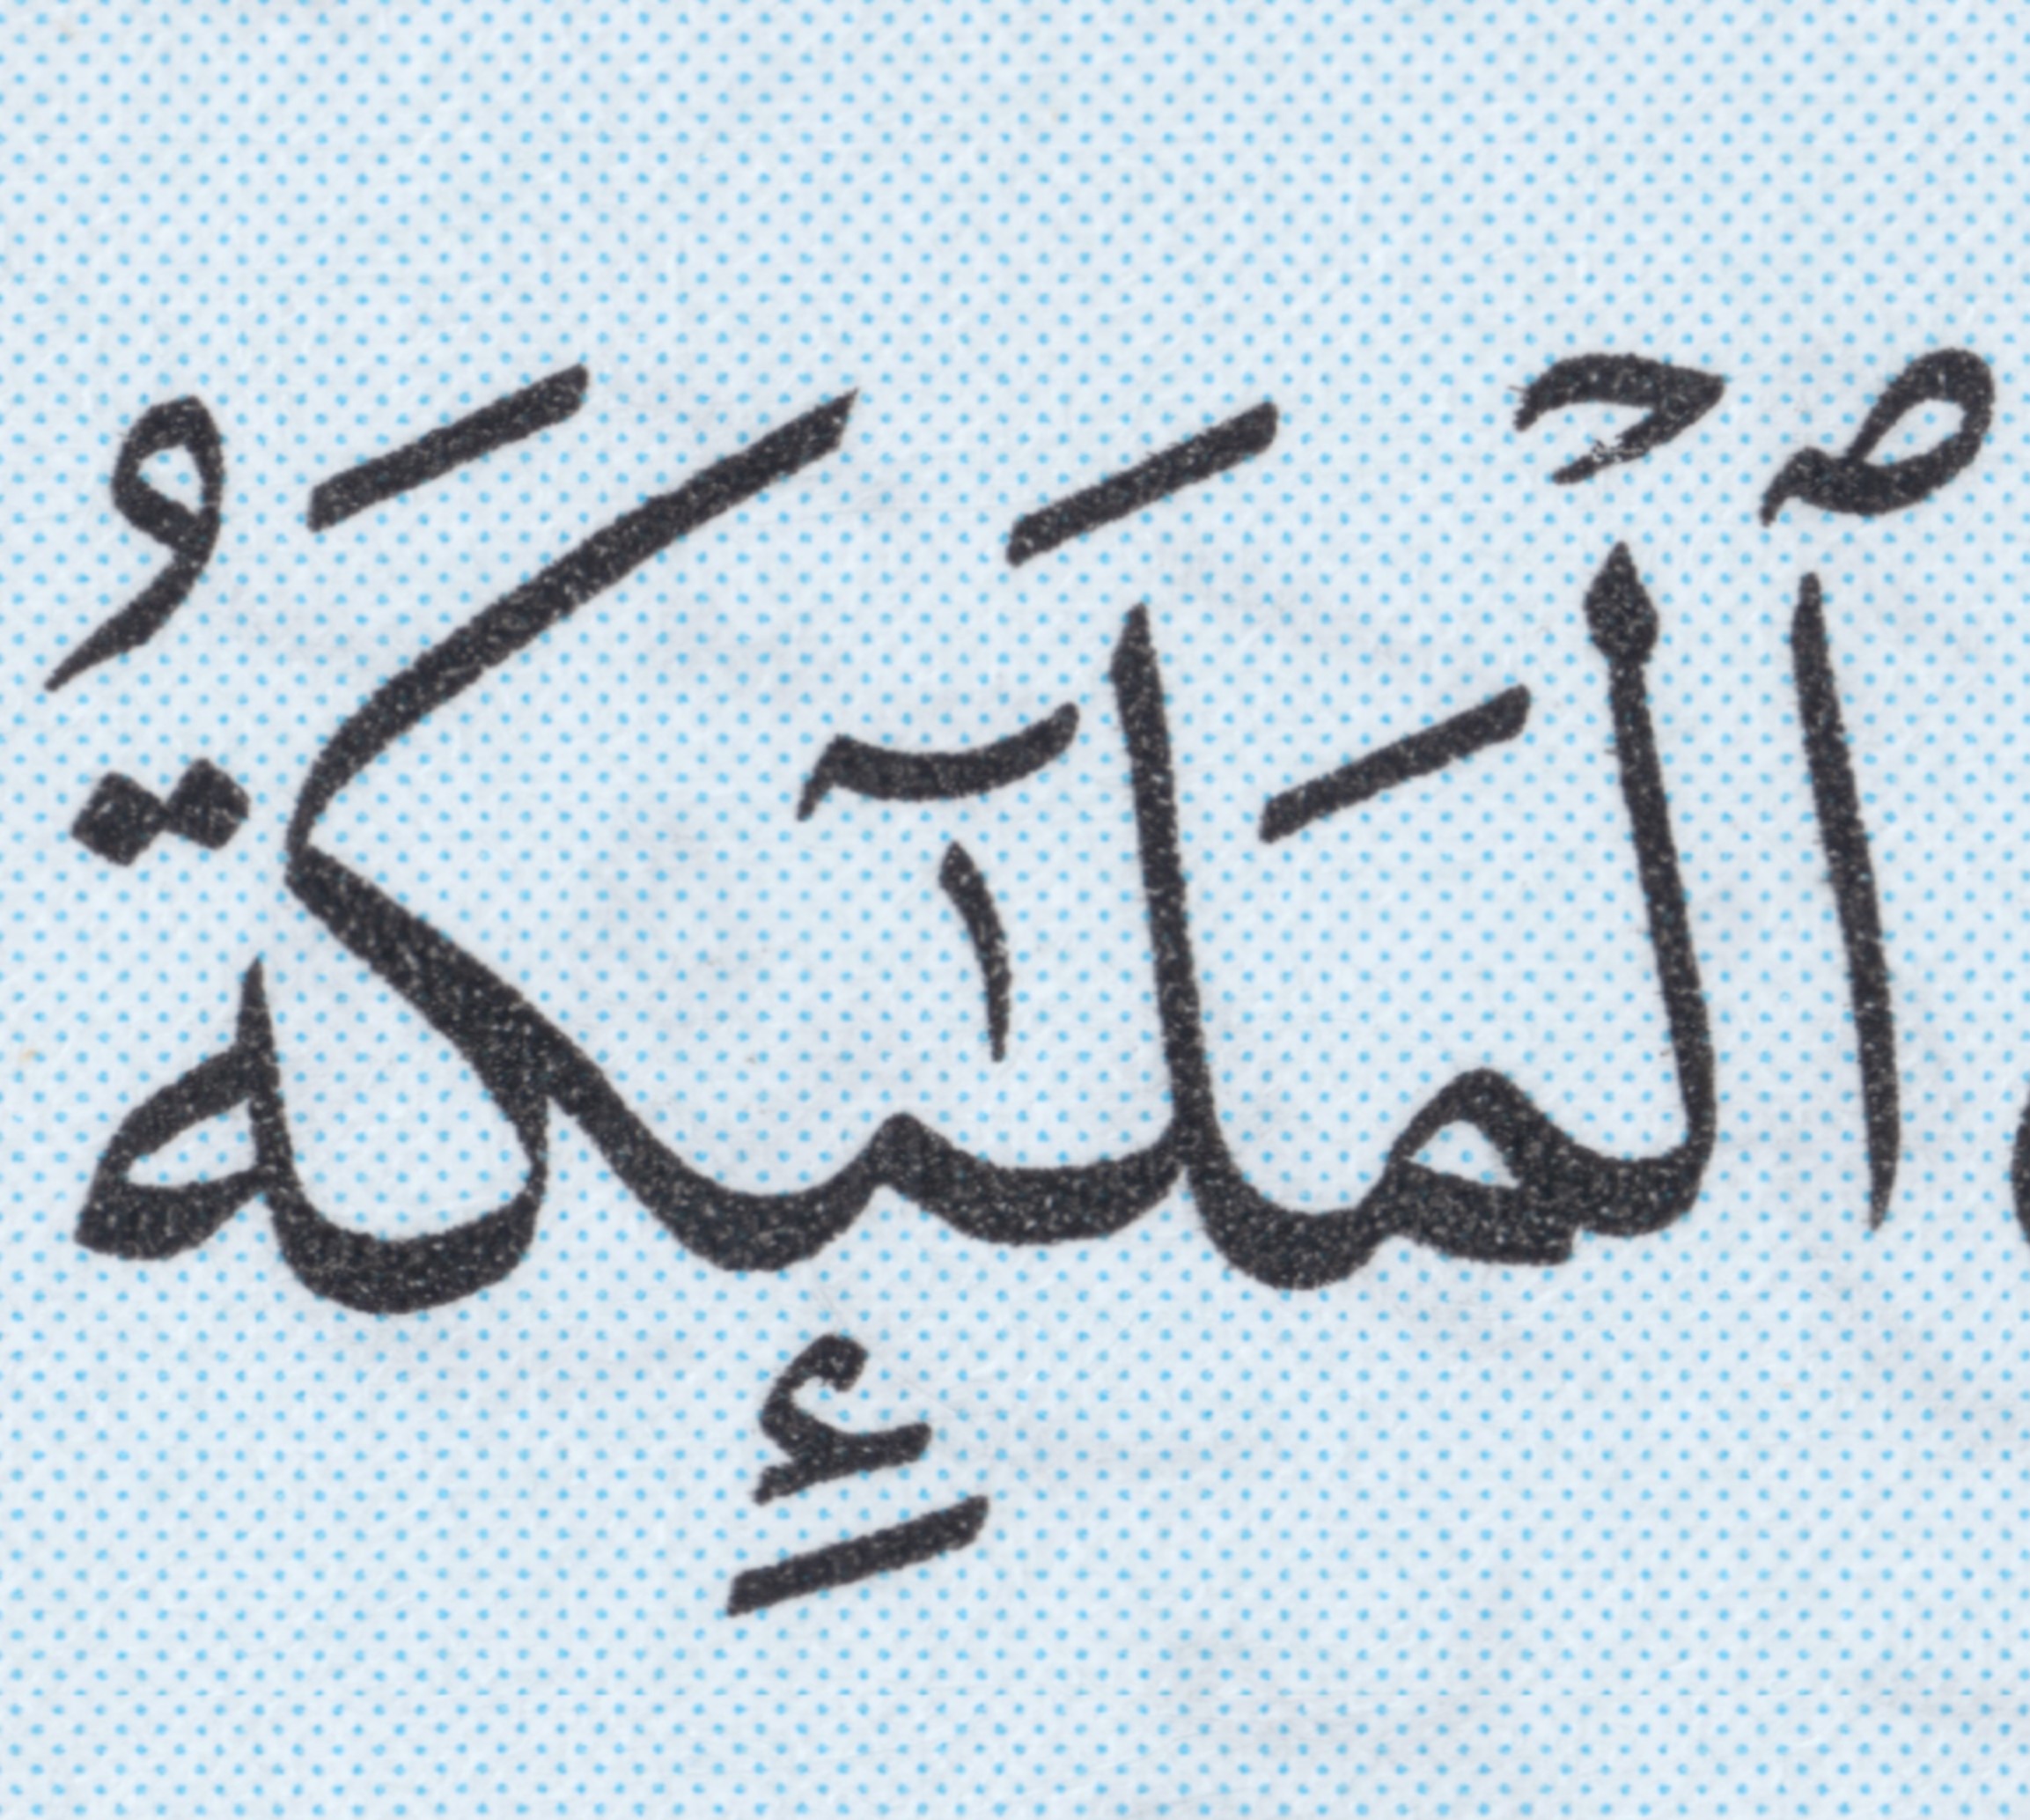 ٱلْمَلَـٰٓئِكَةُ